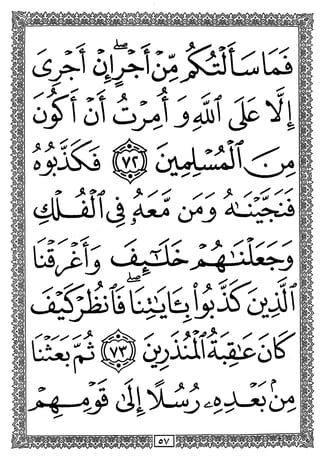 فَمَا سَأَلْتُكُم مِّنْ أَجْرٍ ۖ إِنْ أَجْرِىَ
إِلَّا عَلَى اللَّهِ وَ أُمِرْتُ أَنْ أَكُونَ
مِنَ الْمُسْلِمِينَ ﴿٧٢﴾ فَكَذَّبُوهُ
فَنَجَّيْنَاهُ وَمَن مَّعَهُ فِي الْفُلْكِ
وَجَعَلْنَاهُمْ خَلَائِفَ وَأَغْرَقْنَا
الَّذِينَ كَذَّبُوا بِآيَاتِنَا ۖ فَانظُرْ كَيْفَ
كَانَ عَاقِبَةُ الْمُنذَرِينَ ﴿٧٣﴾ ثُمَّ بَعَثْنَا
مِن بَعْدِهِ رُسُلًا إِلَىٰ قَوْمِهِمْ
٥٧